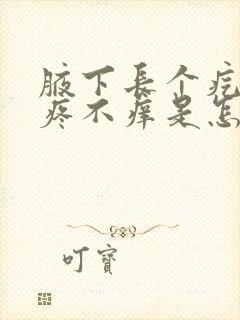 腋下長个疙
疼不痒是怎
叮寶